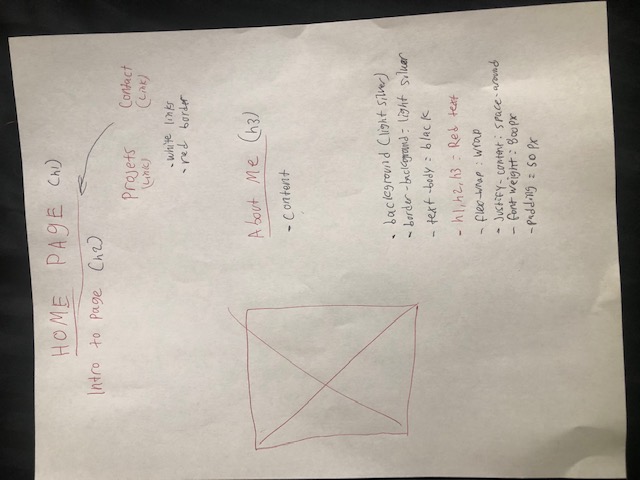 HOME PAGE (h1)
Intro to page (h2)
Projets Contact
(Link) (Link)
- white links
- red border
About Me (h3)
- Content
- background (light silver)
- border-background = light silver
- text-body = black
- h1, h2, h3 = Red text
- flex-wrap: wrap
- Justify-content: space-around
- font weight: 800px
- padding = 50px